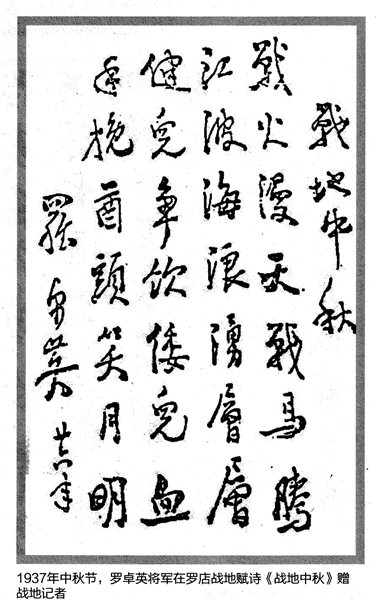 戰地中秋
戰火漫天戰馬騰
江波海浪湧層層
健兒争飲倭兒血
挽酋頭笑月明
羅卓英 廿六年
1937年中秋节，罗卓英将军在罗店战地赋诗《战地中秋》赠
战地记者